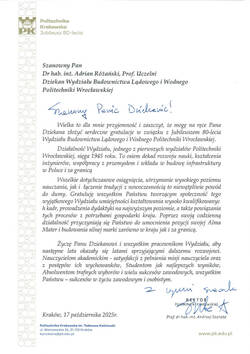 Politechnika
Krakowska
Jubileusz 80-lecia
PK
Szanowny Pan
Dr hab. inż. Adrian Różański, Prof. Uczelni
Dziekan Wydziału Budownictwa Lądowego i Wodnego
Politechniki Wrocławskiej
Szanowny Panie Dziekanie!
Wielka to dla mnie przyjemność i zaszczyt, że mogę na ręce Pana
Dziekana złożyć serdeczne gratulacje w związku z Jubileuszem 80-lecia
Wydziału Budownictwa Lądowego i Wodnego Politechniki Wrocławskiej.
Działalność Wydziału, jednego z pierwszych wydziałów Politechniki
Wrocławskiej, sięga 1945 roku. To osiem dekad rozwoju nauki, kształcenia
inżynierów, współpracy z przemysłem i wkładu w budowę infrastruktury
w Polsce i za granicą.
Wszelkie dotychczasowe osiągnięcia, utrzymanie wysokiego poziomu
nauczania, jak i łączenie tradycji z nowoczesnością to niewątpliwie powód
do dumy. Gratuluję wszystkim Państwu tworzącym społeczność tego
wyjątkowego Wydziału umiejętności kształtowania wysoko kwalifikowanych
kadr, prowadzenia dydaktyki na najwyższym poziomie, a także powiązania tych
procesów z potrzebami gospodarki kraju. Poprzez swoją codzienną
działalność przyczyniają się Państwo do umocnienia pozycji swojej Alma
Mater i budowania silnej marki zarówno w kraju, jak i za granicą.
Życzę Panu Dziekanowi i wszystkim pracownikom Wydziału, aby
następne lata okazały się latami sprzyjającymi dalszemu rozwojowi.
Nauczycielom akademickim - satysfakcji z pełnienia misji nauczyciela oraz
z postępów ich wychowanków, Studentom jak najlepszych wyników,
Absolwentom trafnych wyborów i wielu sukcesów zawodowych, wszystkim
Państwu - sukcesów w życiu zawodowym i osobistym.
REKTOR
Prof. dr hab. inż. Andrzej Szarata
Kraków, 17 października 2025r.
Politechnika Krakowska im. Tadeusza Kościuszki
www.pk.edu.pl